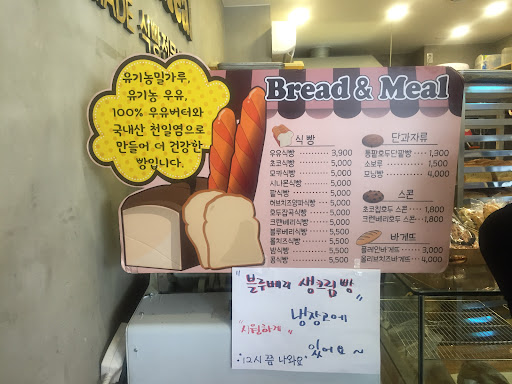 MADE 식빵전문
유기농밀가루,
유기농 우유,
100% 우유버터와
국내산 천일염으로
만들어 더 건강한
빵입니다.
Bread & Meal
식빵
우유식빵 3,900
초코식빵 5,000
모카식빵 5,000
시나몬식빵 5,000
팥식빵 5,000
허브치즈양파식빵 5,000
호두잡곡식빵 5,000
크랜베리식빵 5,000
블루베리식빵 5,500
롤치즈식빵 5,500
밤식빵 5,500
콩식빵 5,500
단과자류
통팥호두단팥빵 1,300
소보루 1,500
모닝빵 4,000
스콘
초코칩호두 스콘 1,800
크랜베리호두 스콘 1,800
바게뜨
플레인바게뜨 3,000
올리브치즈바게뜨 4,000
"블루베리 생크림빵"
냉장고에
"시원하게"
있어요~
:12시 쯤 나와요